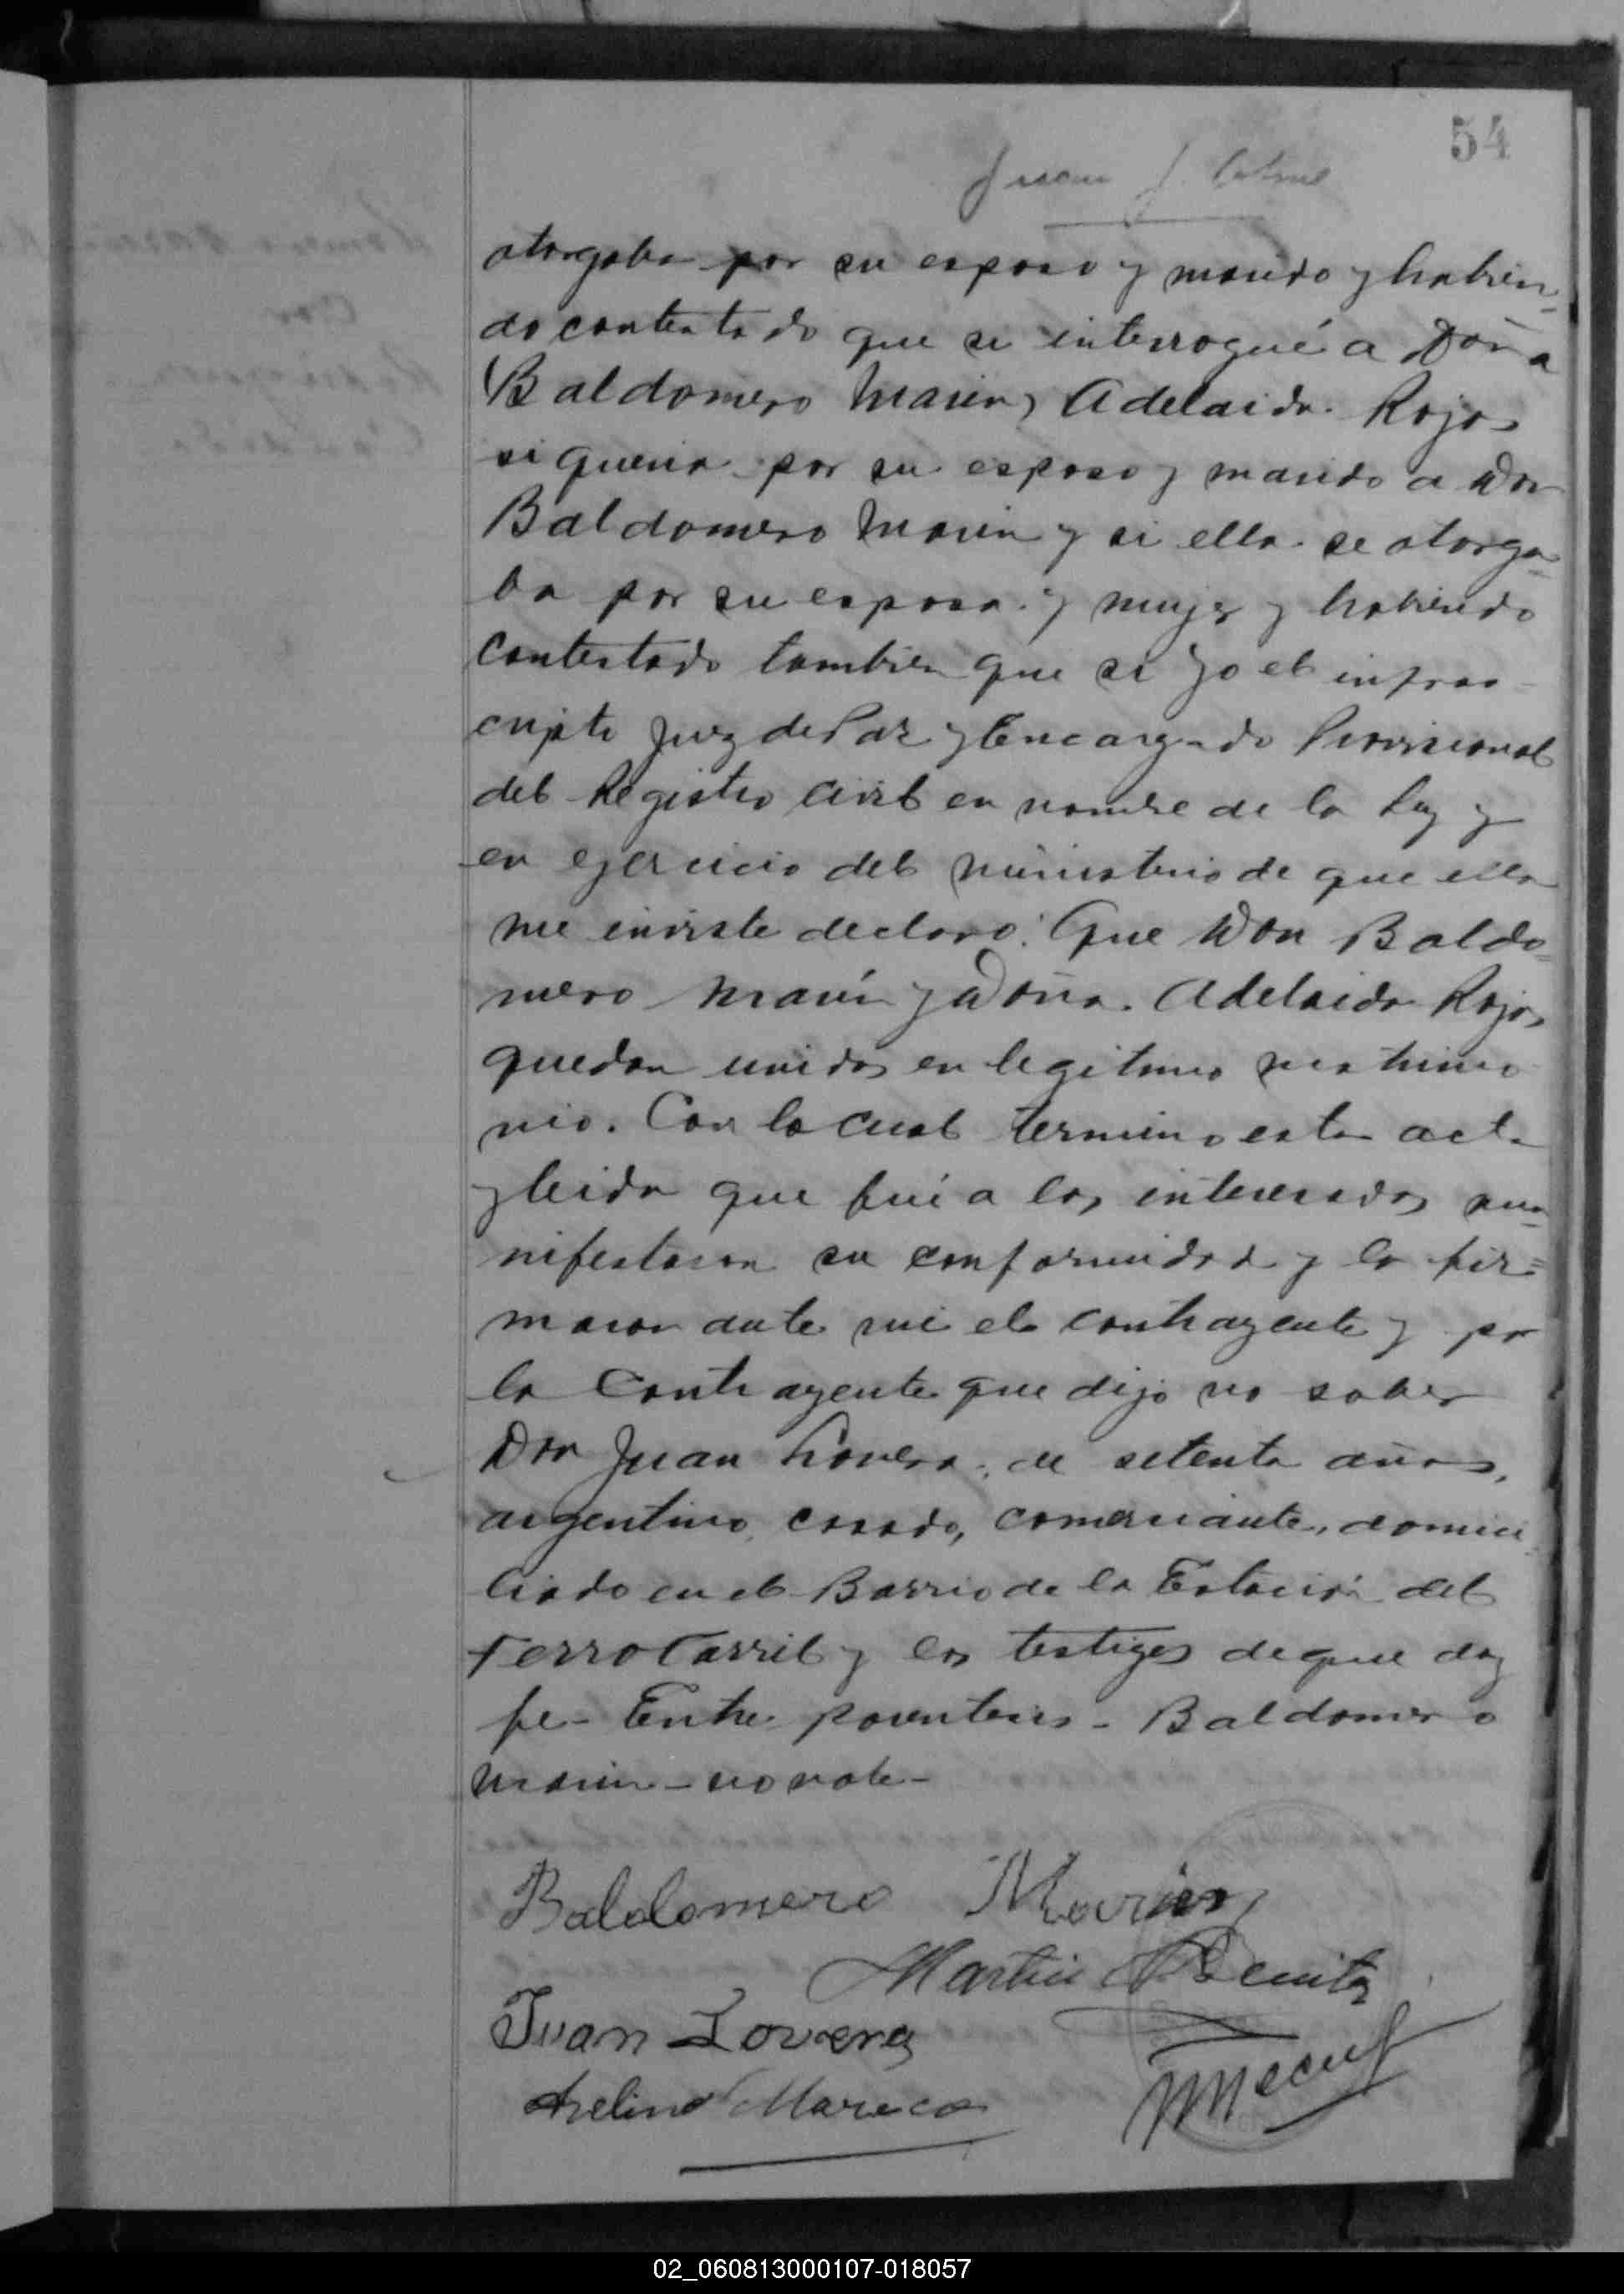 54
Juan J.
otorgaba por su esposo y marido y habien=
do contestado que si interrogué a Doña
(Baldomero Marin) Adelaida Rojas
si queria por su esposo y marido a Don
Baldomero Marin y si ella se otorga=
ba por su esposa y mujer y habiendo
contestado tambien que si Yo el infras-
cripto Juez de Paz y Encargado Provisional
del Registro Civil en nombre de la Ley y
en ejercicio del ministerio de que ella
me inviste declaro: Que Don Baldo=
mero Marín y Doña Adelaida Rojas
quedan unidos en legitimo matrimo
nio. Con lo cual termino esta acta
y leida que fué a los interesados ma=
nifestaron su conformidad y la fir=
maron ante mi el contrayente y por
la Contrayente que dijo no saber
Don Juan Lovera, de setenta años,
argentino, casado, comerciante, domici
liado en el Barrio de la Estación del
FerroCarril y los testigos de que doy
fe - Entre parentesis - Baldomero
Marin - no vale -
Baldomero Marin
Martin Benitez
Juan Lovera
Avelino Mareco